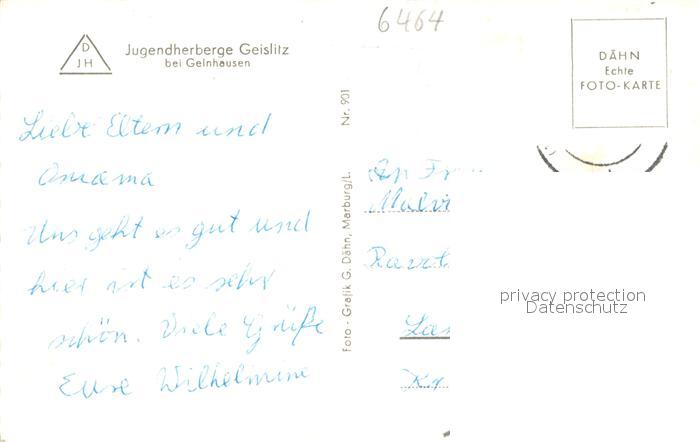 6464
D
JH
Jugendherberge Geislitz
bei Gelnhausen
DÄHN
Echte
FOTO-KARTE
Liebe Eltern und
Omama
Uns geht es gut und
hier ist es sehr
schön. Viele Grüße
Eure Wilhelmine
Nr. 901
Foto - Grafik G. Dähn, Marburg/L.
An
privacy protection
Datenschutz